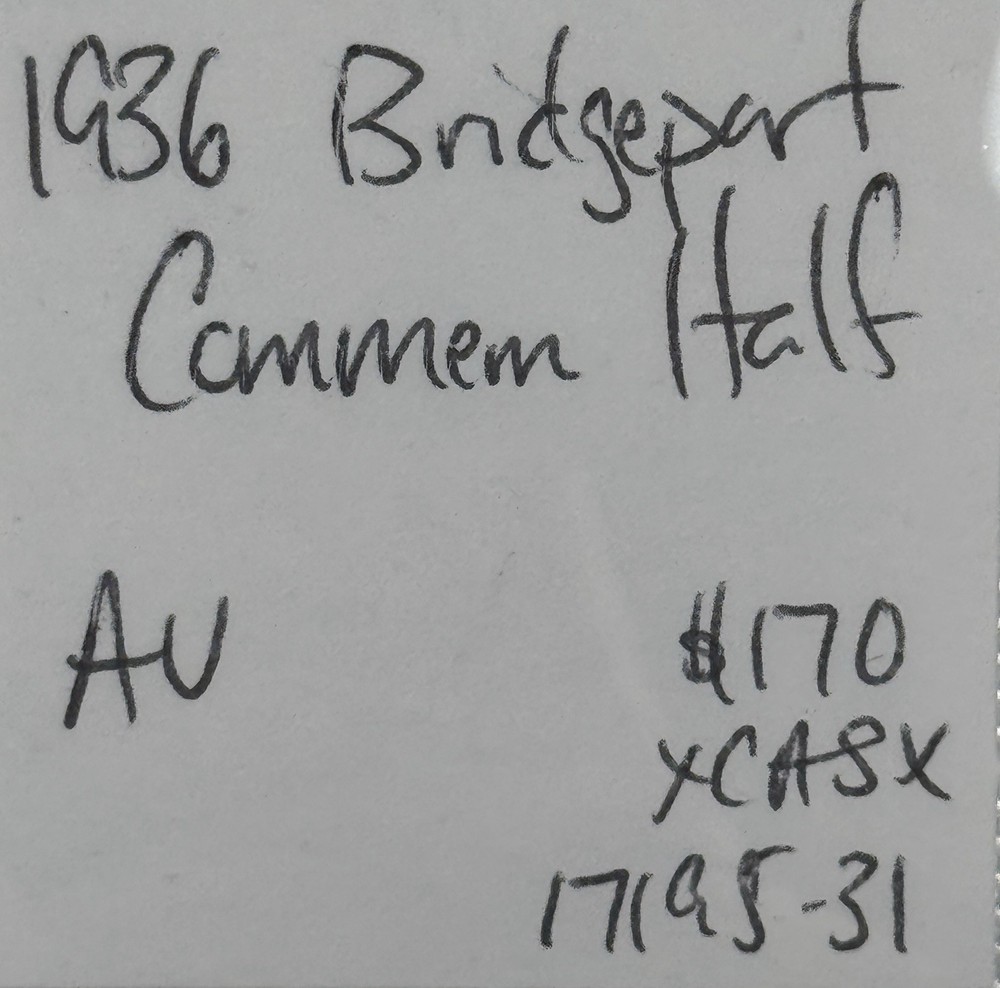 1936 Bridgeport
Commem Half
AU
$170
XCASX
17195-31